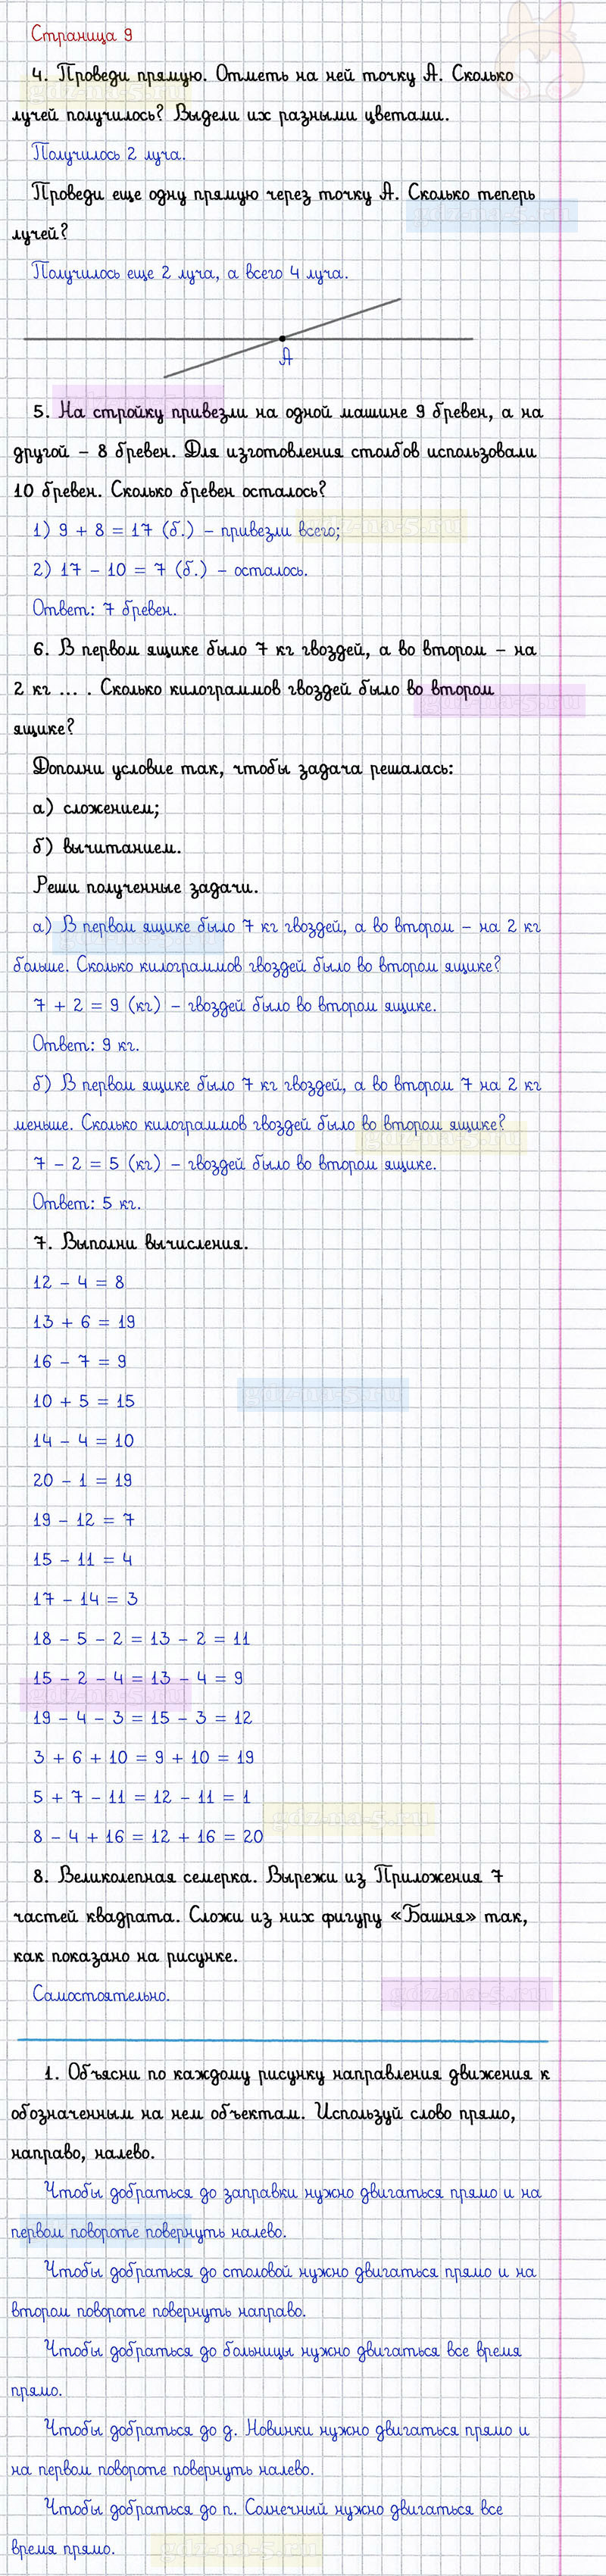 Страница 9
4. Проведи прямую. Отметь на ней точку А. Сколько
лучей получилось? Выдели их разными цветами.
Получилось 2 луча.
Проведи еще одну прямую через точку А. Сколько теперь
лучей?
Получилось еще 2 луча, а всего 4 луча.
А
5. На стройку привезли на одной машине 9 бревен, а на
другой – 8 бревен. Для изготовления столбов использовали
10 бревен. Сколько бревен осталось?
1) 9 + 8 = 17 (б.) – привезли всего;
2) 17 – 10 = 7 (б.) – осталось.
Ответ: 7 бревен.
6. В первом ящике было 7 кг гвоздей, а во втором – на
2 кг ... . Сколько килограммов гвоздей было во втором
ящике?
Дополни условие так, чтобы задача решалась:
а) сложением;
б) вычитанием.
Реши полученные задачи.
а) В первом ящике было 7 кг гвоздей, а во втором – на 2 кг
больше. Сколько килограммов гвоздей было во втором ящике?
7 + 2 = 9 (кг) – гвоздей было во втором ящике.
Ответ: 9 кг.
б) В первом ящике было 7 кг гвоздей, а во втором 7 на 2 кг
меньше. Сколько килограммов гвоздей было во втором ящике?
7 – 2 = 5 (кг) – гвоздей было во втором ящике.
Ответ: 5 кг.
7. Выполни вычисления.
12 – 4 = 8
13 + 6 = 19
16 – 7 = 9
10 + 5 = 15
14 – 4 = 10
20 – 1 = 19
19 – 12 = 7
15 – 11 = 4
17 – 14 = 3
18 – 5 – 2 = 13 – 2 = 11
15 – 2 – 4 = 13 – 4 = 9
19 – 4 – 3 = 15 – 3 = 12
3 + 6 + 10 = 9 + 10 = 19
5 + 7 – 11 = 12 – 11 = 1
8 – 4 + 16 = 12 + 16 = 20
8. Великолепная семерка. Вырежи из Приложения 7
частей квадрата. Сложи из них фигуру «Башня» так,
как показано на рисунке.
Самостоятельно.
1. Объясни по каждому рисунку направления движения к
обозначенным на нем объектам. Используй слово прямо,
направо, налево.
Чтобы добраться до заправки нужно двигаться прямо и на
первом повороте повернуть налево.
Чтобы добраться до столовой нужно двигаться прямо и на
втором повороте повернуть направо.
Чтобы добраться до больницы нужно двигаться все время
прямо.
Чтобы добраться до д. Новинки нужно двигаться прямо и
на первом повороте повернуть налево.
Чтобы добраться до п. Солнечный нужно двигаться все
время прямо.